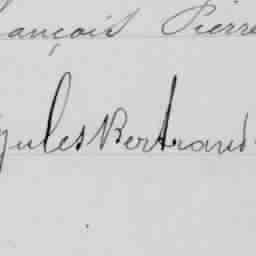 François Pierre
Jules Bertrand